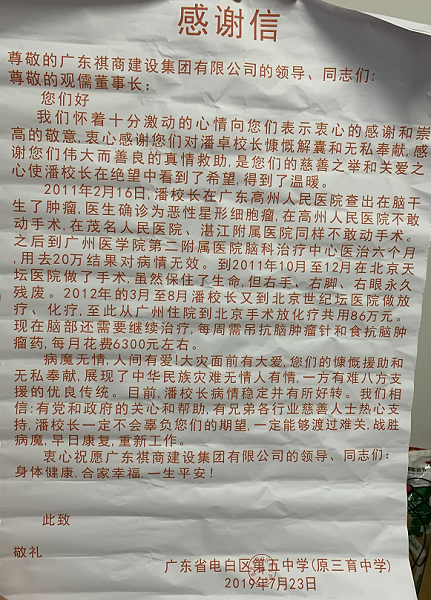 感谢信
尊敬的广东祺商建设集团有限公司的领导、同志们:
尊敬的观儒董事长:
您们好
我们怀着十分激动的心情向您们表示衷心的感谢和崇
高的敬意,衷心感谢您们对潘卓校长慷慨解囊和无私奉献,感
谢您们伟大而善良的真情救助,是您们的慈善之举和关爱之
心使潘校长在绝望中看到了希望,得到了温暖。
2011年2月16日,潘校长在广东高州人民医院查出在脑干
生了肿瘤,医生确诊为恶性星形细胞瘤,在高州人民医院不敢
动手术,在茂名人民医院、湛江附属医院同样不敢动手术。
之后到广州医学院第二附属医院脑科治疗中心医治六个月
,用去20万结果对病情无效。到2011年10月至12月在北京天
坛医院做了手术,虽然保住了生命,但右手、右脚、右眼永久
残废。2012年的3月至8月潘校长又到北京世纪坛医院做放
疗、化疗,至此从广州住院到北京手术放化疗共用86万元。
现在脑部还需要继续治疗,每周需吊抗脑肿瘤针和食抗脑肿
瘤药,每月花费6300元左右。
病魔无情,人间有爱!大灾面前有大爱,您们的慷慨援助和
无私奉献,展现了中华民族灾难无情人有情,一方有难八方支
援的优良传统。目前,潘校长病情稳定并有所好转。我们相
信:有党和政府的关心和帮助,有兄弟各行业慈善人士热心支
持,潘校长一定不会辜负您们的期望,一定能够渡过难关,战胜
病魔,早日康复,重新工作。
衷心祝愿广东祺商建设集团有限公司的领导、同志们:
身体健康,合家幸福,一生平安!
此致
敬礼
广东省电白区第五中学(原三育中学)
2019年7月23日